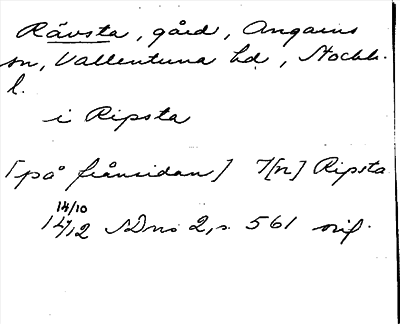 Rävsta, gård, Angarns
sn, Vallentuna hd, Stockh.
l.
i Ripsta
[på frånsidan] 7[n] Ripsta
14/10
1412 SDns 2, s. 561 orig.